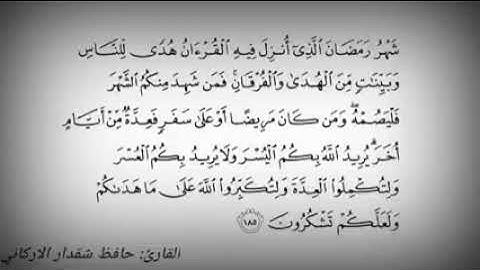 شَهْرُ رَمَضَانَ ٱلَّذِىٓ أُنزِلَ فِيهِ ٱلْقُرْءَانُ هُدًى لِّلنَّاسِ
وَبَيِّنَٰتٍ مِّنَ ٱلْهُدَىٰ وَٱلْفُرْقَانِ ۚ فَمَن شَهِدَ مِنكُمُ ٱلشَّهْرَ
فَلْيَصُمْهُ ۖ وَمَن كَانَ مَرِيضًا أَوْ عَلَىٰ سَفَرٍ فَعِدَّةٌ مِّنْ أَيَّامٍ
أُخَرَ ۗ يُرِيدُ ٱللَّهُ بِكُمُ ٱلْيُسْرَ وَلَا يُرِيدُ بِكُمُ ٱلْعُسْرَ
وَلِتُكْمِلُوا۟ ٱلْعِدَّةَ وَلِتُكَبِّرُوا۟ ٱللَّهَ عَلَىٰ مَا هَدَىٰكُمْ
وَلَعَلَّكُمْ تَشْكُرُونَ ١٨٥
القارئ: حافظ شفدار الاركاني